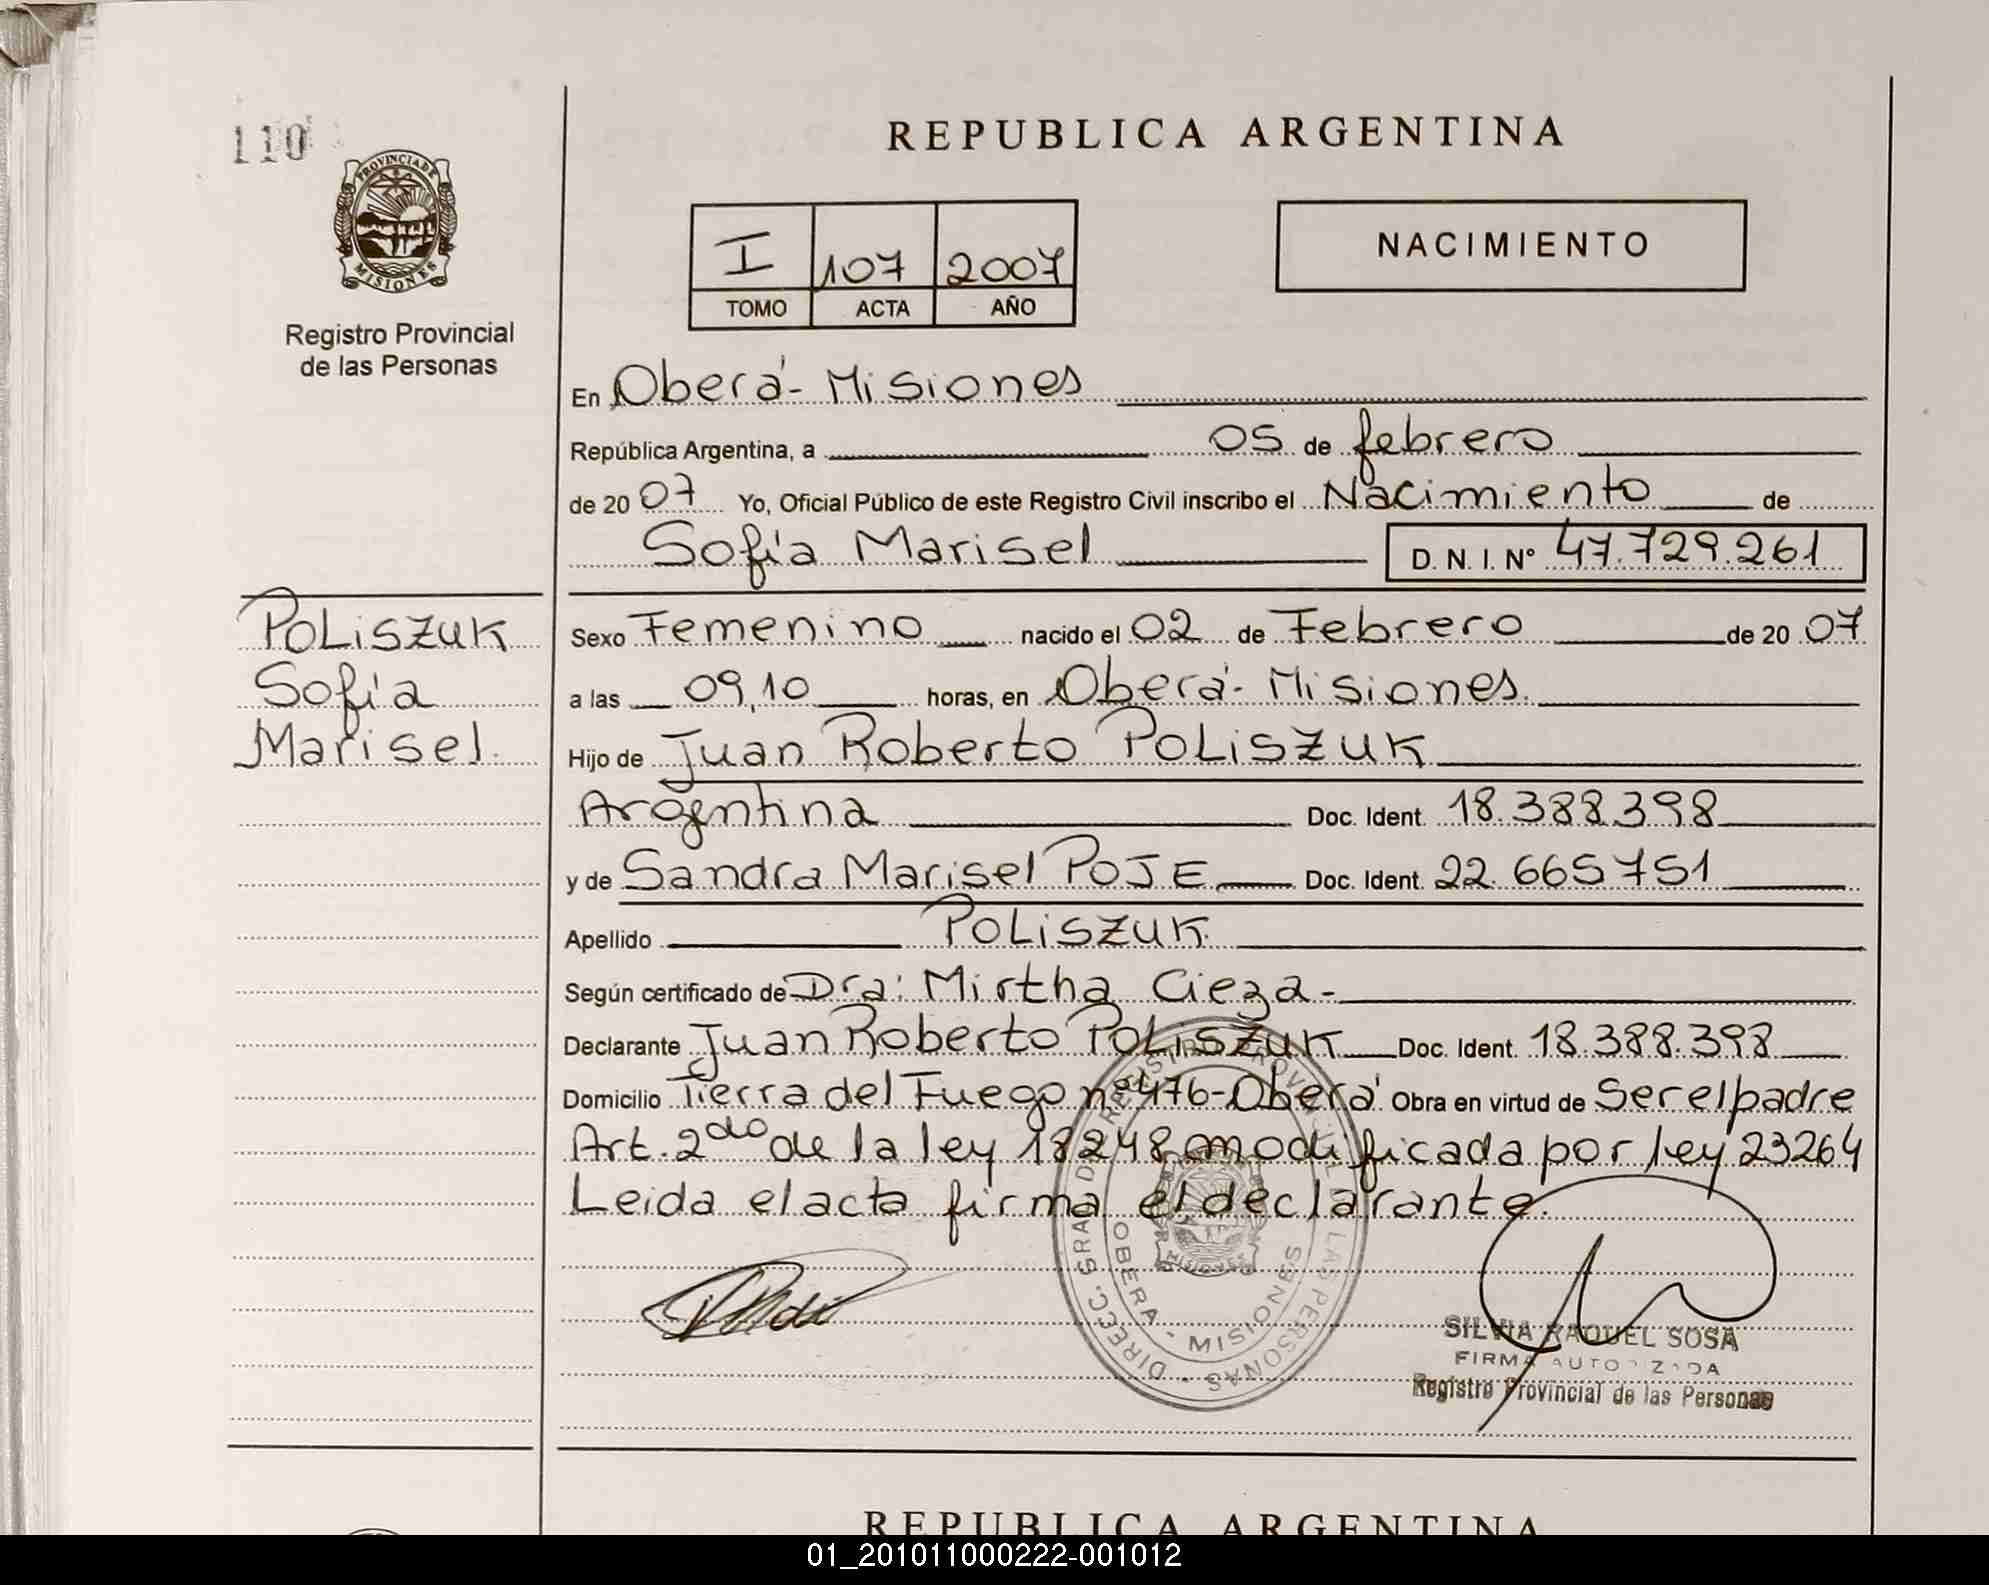 110
PROVINCIA DE
MISIONES
Registro Provincial
de las Personas
REPUBLICA ARGENTINA
I 107 2007
TOMO ACTA AÑO
NACIMIENTO
En Oberá - Misiones
República Argentina, a 05 de febrero
de 20 07 Yo, Oficial Público de este Registro Civil inscribo el Nacimiento de
Sofía Marisel D. N. I. Nº 47.729.261
POLISZUK
Sofía
Marisel.
Sexo Femenino nacido el 02 de Febrero de 20 07
a las 09,10 horas, en Oberá - Misiones.
Hijo de Juan Roberto POLISZUK
Argentina Doc. Ident. 18.388.398
y de Sandra Marisel POJE Doc. Ident. 22.665751
Apellido POLISZUK.
Según certificado de Dra: Mirtha Cieza -
Declarante Juan Roberto POLISZUK Doc. Ident. 18.388.398
Domicilio Tierra del Fuego nº 476 - Oberá Obra en virtud de Ser el padre
Art. 2do de la ley 18248 modificada por ley 23264
Leida el acta firma el declarante.
DIRECC. GRAL. DE REGISTRO PROVINCIAL DE LAS PERSONAS
OBERA - MISIONES
MISIONES
SILVIA RAQUEL SOSA
FIRMA AUTORIZADA
Registro Provincial de las Personas
REPUBLICA ARGENTINA
01_201011000222-001012